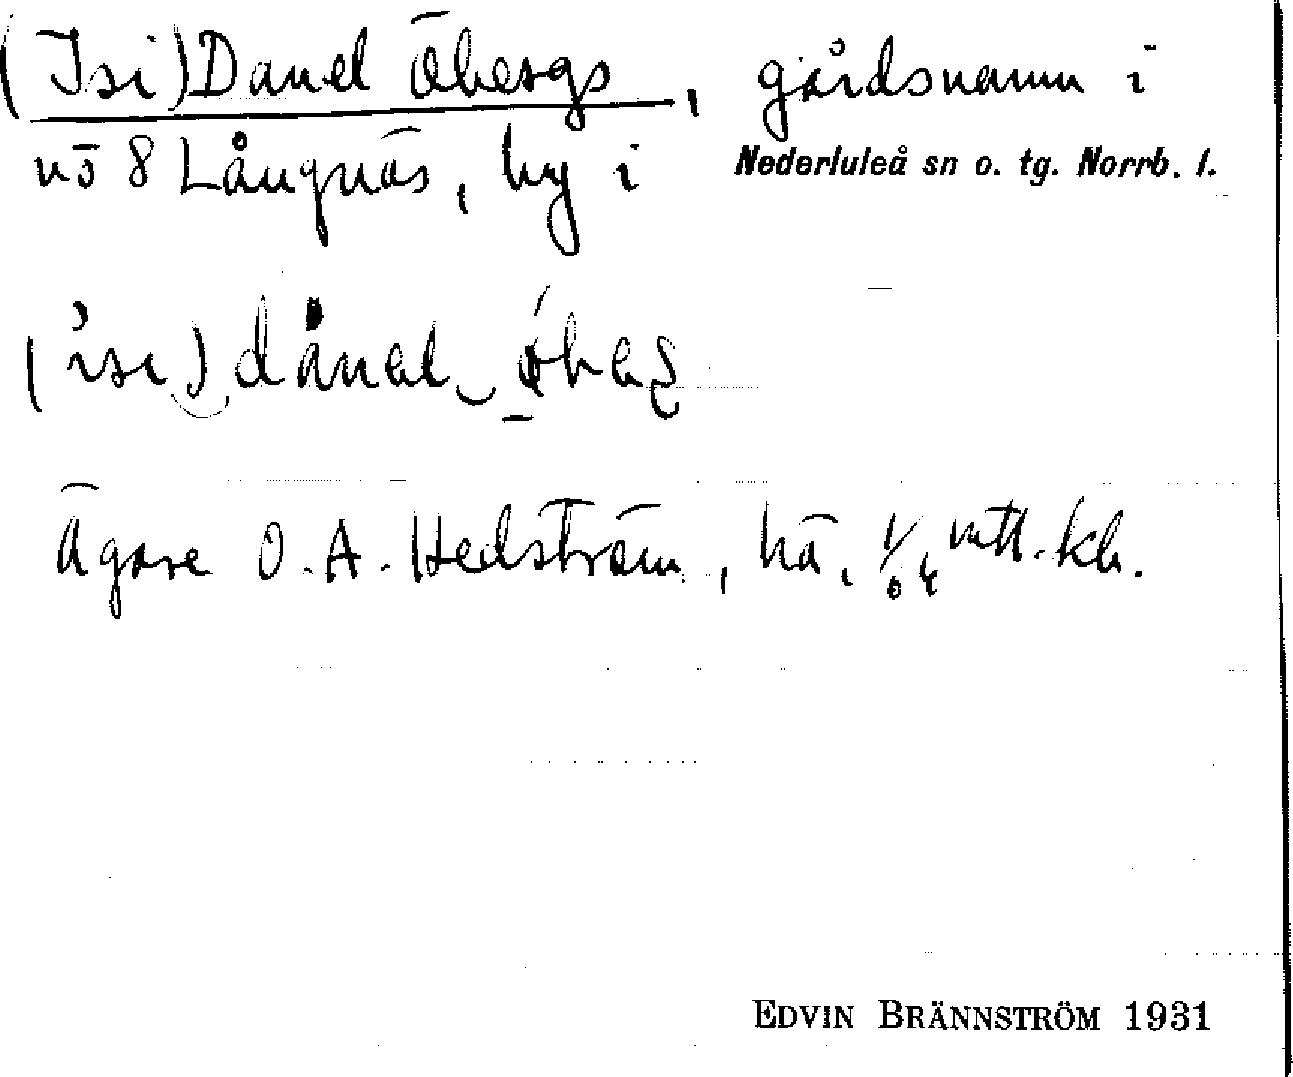 (Isi)Danel Öbergs, gårdsnamn i
nö 8 Långnäs, by i Nederluleå sn o. tg. Norrb. l.
Ägare O. A. Hedström, hä. 1/64 mtl. kh.
EDVIN BRÄNNSTRÖM 1931